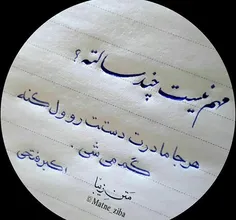 مهم نیست چند سالته؟
هرجا مادرت دستت رو ول کنه
گم می شی.
اکبر فتحی
متن زیبا
© Matne_ziba